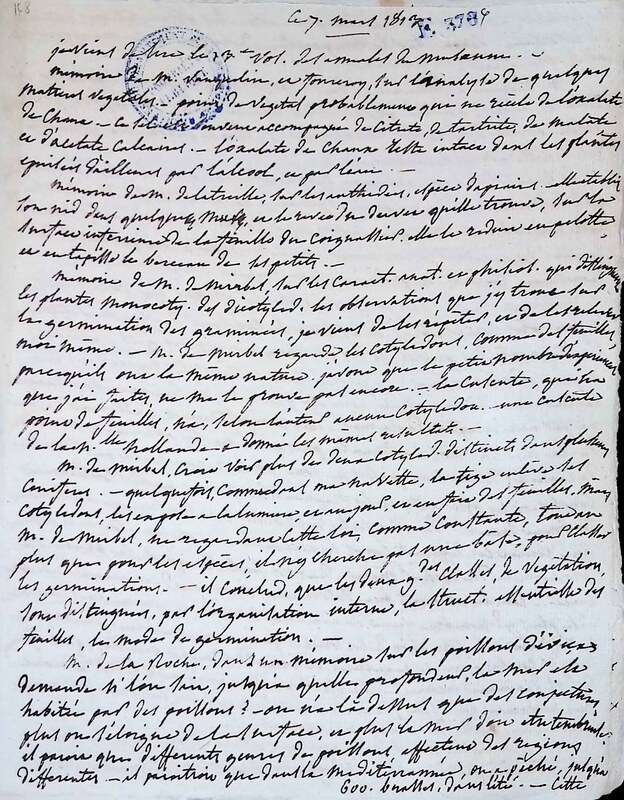 168
ce 7. mars 1813
je viens de lire le 13.e vol. des annales du museum. -
mémoire de m. vauquelin, et fourcroy, sur l'analyse de quelques
matieres vegetales. - point de vegetal probablement qui ne recele de l'oxalate
de chaux - ce sel est souvent accompagné de citrate, de tartrite, de malate
et d'acetate calcaires. - l'oxalate de chaux reste intact dans les plantes
epuisées d'ailleurs par l'alcool, et par l'eau. -
mémoire de m. de latreille, sur les anthidies, espèce d'apiaires. - elle etablit
son nid dans quelques et le revêt du duvet qu'elle trouve, sur la
surface inferieure de la feuille du coignassier. elle le reduit en pelotte
et en tapisse le berceau de ses petits. -
mémoire de m. de mirbel, sur les caract. anat. et phisiol. qui distinguent
les plantes monocoty. des dicotyled. les observations que j'y trouve sur
la germination des graminées, je viens de les répéter, et de les relever
moi même. - m. de mirbel regarde les cotyledons, comme des feuilles
parce qu'ils ont la même nature. j'avoue que le petit nombre d'experiences
que j'ai faites, ne me le prouve pas encore. - la cuscute, qui n'a
point de feuilles, n'a, selon l'auteur aucun cotyledon. - une cuscute
de la n.lle hollande a donné les mêmes resultats. -
m. de mirbel, croit voir plus de deux cotyled. distincts dans plusieurs
coniferes. - quelquefois, comme dans ma navette, la tige enlève les
cotyledons, les expose a la lumiere et au jour, et en fait des feuilles, mais
m. de mirbel, ne regardant cette loi, comme constante, tout au
plus que pour les espèces, il n'y cherche pas une base, pour classer
les germinations. - il conclud, que les deux g.des classes, de vegetation
sont distinguées, par l'organisation interne, la struct. essentielle des
feuilles, le mode de germination. -
m. de la roche, dans un mémoire sur les poissons d'iviça
demande si l'on sait, jusqu'a quelle profondeur la mer est
habitée par des poissons? - on n'a là dessus que des conjectures
plus on s'éloigne de la surface, et plus la mer doit etre tenebreuse.
il parait que differents genres de poissons, affectent des regions
differentes - il paroitroit que dans la méditerrannée, on a pêché, jusqu'a
600. brasses, dans l'été. - cette